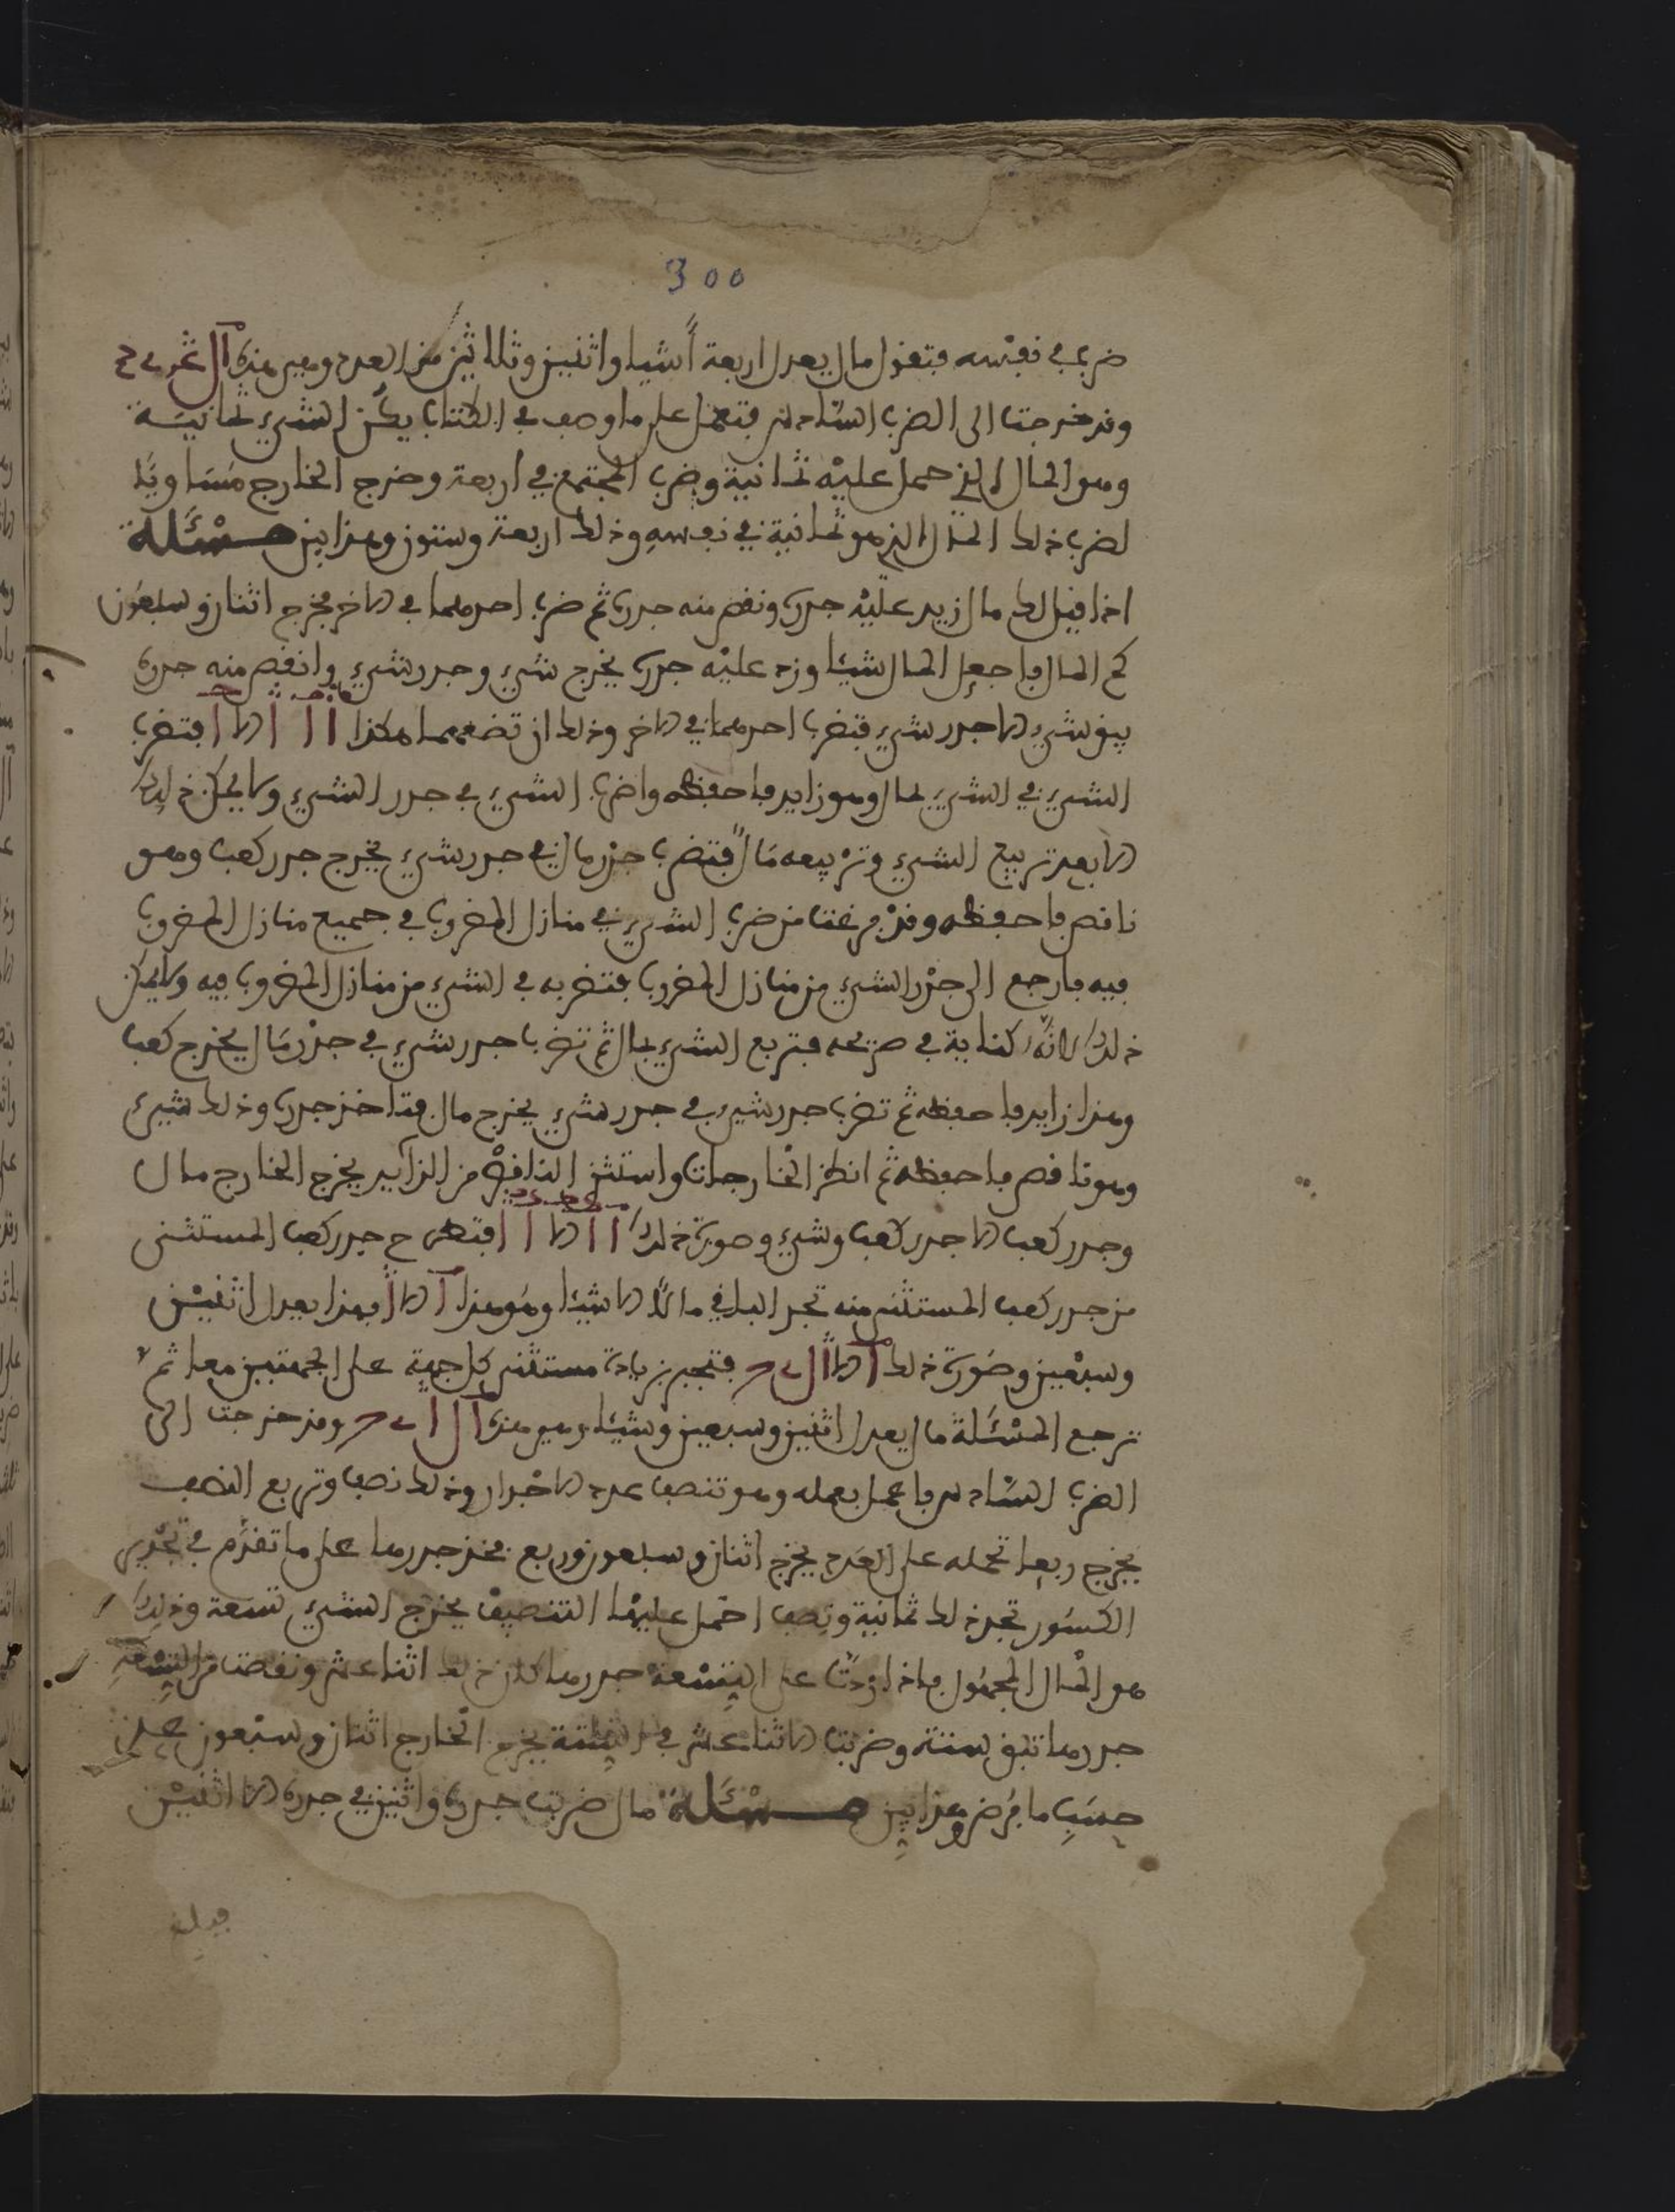 300
ضربه في نفسه فتقول مال يعدل اربعة أشيا واثنين وثلاثين من العدد وهي هذه
وقد خرجت الى الضرب السادس فتعمل على ما وصف في الكتاب يكن الشيء ثمانية
وهو المال الذي حمل عليه ثمانية وضرب المجتمع في اربعة وخرج الخارج مساويا
لضرب ذلك المال الذي هو ثمانية في نفسه وذلك اربعة وستون وهذا بين مسئلة
اذا قيل لك مال زيد عليه جذره ونقص منه جذره ثم ضرب احدهما في الاخر فخرج اثنان وسبعون
كم المال فاجعل المال شيئا وزد عليه جذره يخرج شيء وجذر شيء وانقص منه جذره
يبق شيء الا جذر شيء فتضرب احدهما في الاخر وذلك ان تضعهما هكذا فتضرب
الشيء في الشيء بمال وهو زايد فاحفظه واضرب الشيء في جذر الشيء ولا يمكن ذلك
الا بعد تربيع الشيء وتربيعه مال فتضرب جذر مال في جذر شيء يخرج جذر كعب وهو
ناقص فاحفظه وقد فرغت من ضرب الشيء في منازل المضروب في جميع منازل المضروب
فيه فارجع الى جذر الشيء من منازل المضروب فتضربه في الشيء من منازل المضروب فيه ولا يمكن
ذلك لانه كناية في صريحه فتربع الشيء بمال ثم تضرب جذر شيء في جذر مال يخرج كعب
وهذا زايد فاحفظه ثم تضرب جذر شيء في جذر شيء يخرج مال فتاخذ جذره وذلك شيء
وهو ناقص فاحفظه ثم انظر الخارجات واستثن الناقص من الزايد يخرج الخارج مال
وجذر كعب الا جذر كعب وشيء وصورة ذلك فتطرح جذر كعب المستثنى
من جذر كعب المستثنى منه تجد الباقي مالا الا شيئا وهو هذا فهذا يعدل اثنين
وسبعين وصورة ذلك فتجبر بزيادة مستثنى كل جهة على الجهتين معا ثم
ترجع المسئلة مال يعدل اثنين وسبعين وشيئا وهي هذه وقد خرجت الى
الضرب السادس فاعمل بعمله وهو تنصف عدد الاجذار وذلك نصف وتربع النصف
يخرج ربع تحمله على العدد يخرج اثنان وسبعون وربع فخذ جذرها على ما تقدم في تجذير
الكسور تجد ذلك ثمانية ونصف احمل عليها التنصيف يخرج الشيء تسعة وذلك
هو المال المجهول فاذا زدت على التسعة جذرها كان ذلك اثنا عشر ونقصت من التسعة
جذرها تبق ستة وضربت الاثنا عشر في الستة يخرج الخارج اثنان وسبعون على
حسب ما فرض وهذا بين مسئلة مال ضربت جذره واثنين في جذره الا اثنين